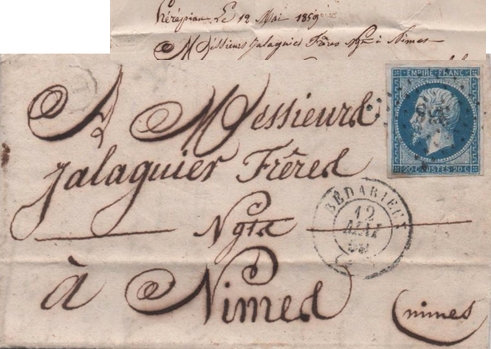 Hérépian Le 12 Mai 1859
Messieurs Jalaguier Frères Ngts à Nimes
A Messieurs
Jalaguier Frères
Ngts
à Nimes
(nimes
EMPIRE FRANC
20 C. POSTES 20 C.
BÉDARIEUX
12
MAI
59